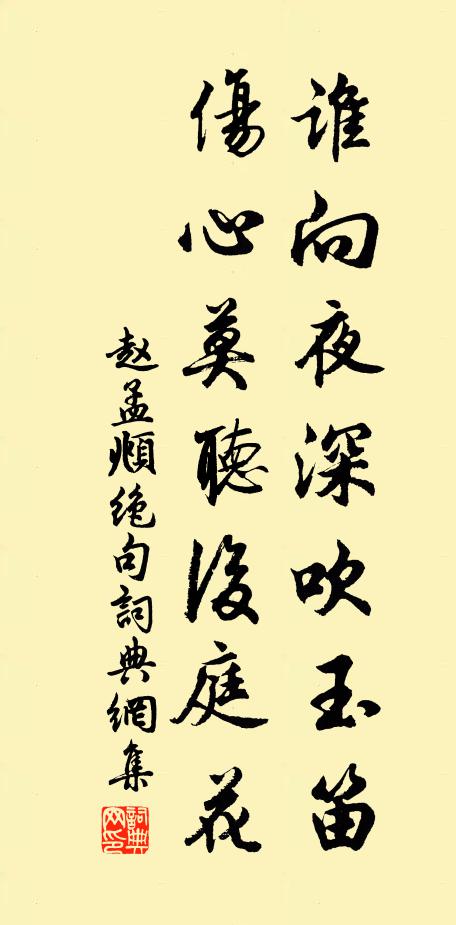 谁向夜深吹玉笛
傷心莫聽後庭花
赵孟頫绝句詞典網集
詞典
网印